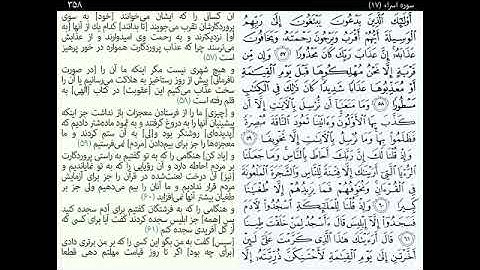 سوره اسراء (۱۷)
۳۵۸
أُولَٰئِكَ الَّذِينَ يَدْعُونَ يَبْتَغُونَ إِلَىٰ رَبِّهِمُ
الْوَسِيلَةَ أَيُّهُمْ أَقْرَبُ وَيَرْجُونَ رَحْمَتَهُ وَيَخَافُونَ
عَذَابَهُ إِنَّ عَذَابَ رَبِّكَ كَانَ مَحْذُورًا ۵۷ وَإِن مِّن
قَرْيَةٍ إِلَّا نَحْنُ مُهْلِكُوهَا قَبْلَ يَوْمِ الْقِيَٰمَةِ
أَوْ مُعَذِّبُوهَا عَذَابًا شَدِيدًا كَانَ ذَٰلِكَ فِي الْكِتَٰبِ
مَسْطُورًا ۵۸ وَمَا مَنَعَنَا أَن نُّرْسِلَ بِالْآيَٰتِ إِلَّا أَن
كَذَّبَ بِهَا الْأَوَّلُونَ وَآتَيْنَا ثَمُودَ النَّاقَةَ مُبْصِرَةً
فَظَلَمُوا بِهَا وَمَا نُرْسِلُ بِالْآيَٰتِ إِلَّا تَخْوِيفًا
۵۹ وَإِذْ قُلْنَا لَكَ إِنَّ رَبَّكَ أَحَاطَ بِالنَّاسِ وَمَا جَعَلْنَا
الرُّءْيَا الَّتِي أَرَيْنَٰكَ إِلَّا فِتْنَةً لِّلنَّاسِ وَالشَّجَرَةَ
الْمَلْعُونَةَ فِي الْقُرْءَانِ وَنُخَوِّفُهُمْ فَمَا يَزِيدُهُمْ إِلَّا طُغْيَٰنًا
كَبِيرًا ۶۰ وَإِذْ قُلْنَا لِلْمَلَٰئِكَةِ اسْجُدُوا لِآدَمَ
فَسَجَدُوا إِلَّا إِبْلِيسَ قَالَ ءَأَسْجُدُ لِمَنْ خَلَقْتَ طِينًا
۶۱ قَالَ أَرَءَيْتَكَ هَٰذَا الَّذِي كَرَّمْتَ عَلَيَّ لَئِنْ
أَخَّرْتَنِ إِلَىٰ يَوْمِ الْقِيَٰمَةِ لَأَحْتَنِكَنَّ ذُرِّيَّتَهُ إِلَّا
آن کسانی را که ایشان می‌خوانند [خود] به سوی
پروردگارشان تقرب می‌جویند [تا بدانند] کدام یک از آنها [به
او] نزدیکترند و به رحمت وی امیدوارند و از عذابش
می‌ترسند چرا که عذاب پروردگارت همواره در خور پرهیز
است (۵۷)
و هیچ شهری نیست مگر اینکه ما آن را [در صورت
نافرمانی] پیش از روز رستاخیز به هلاکت می‌رسانیم یا آن را
سخت عذاب می‌کنیم این [عقوبت] در کتاب [الهی] به
قلم رفته است (۵۸)
و [چیزی] ما را از فرستادن معجزات باز نداشت جز اینکه
پیشینیان آنها را به دروغ گرفتند و به ثمود ماده‌شتر دادیم که
[پدیده‌ای] روشنگر بود و[لی] به آن ستم کردند و ما
معجزه‌ها را جز برای بیم‌دادن [مردم] نمی‌فرستیم (۵۹)
و [یاد کن] هنگامی را که به تو گفتیم به راستی پروردگارت
بر مردم احاطه دارد و آن رؤیایی را که به تو نمایاندیم و
[نیز] آن درخت لعنت‌شده در قرآن را جز برای آزمایش
مردم قرار ندادیم و ما آنان را بیم می‌دهیم ولی جز بر
طغیان بیشتر آنها نمی‌افزاید (۶۰)
و هنگامی را که به فرشتگان گفتیم برای آدم سجده کنید
پس [همه] جز ابلیس سجده کردند گفت آیا برای کسی که
از گل آفریدی سجده کنم (۶۱)
[سپس] گفت به من بگو این کسی را که بر من برتری دادی
[برای چه بود] اگر تا روز قیامت مهلتم دهی قطعا